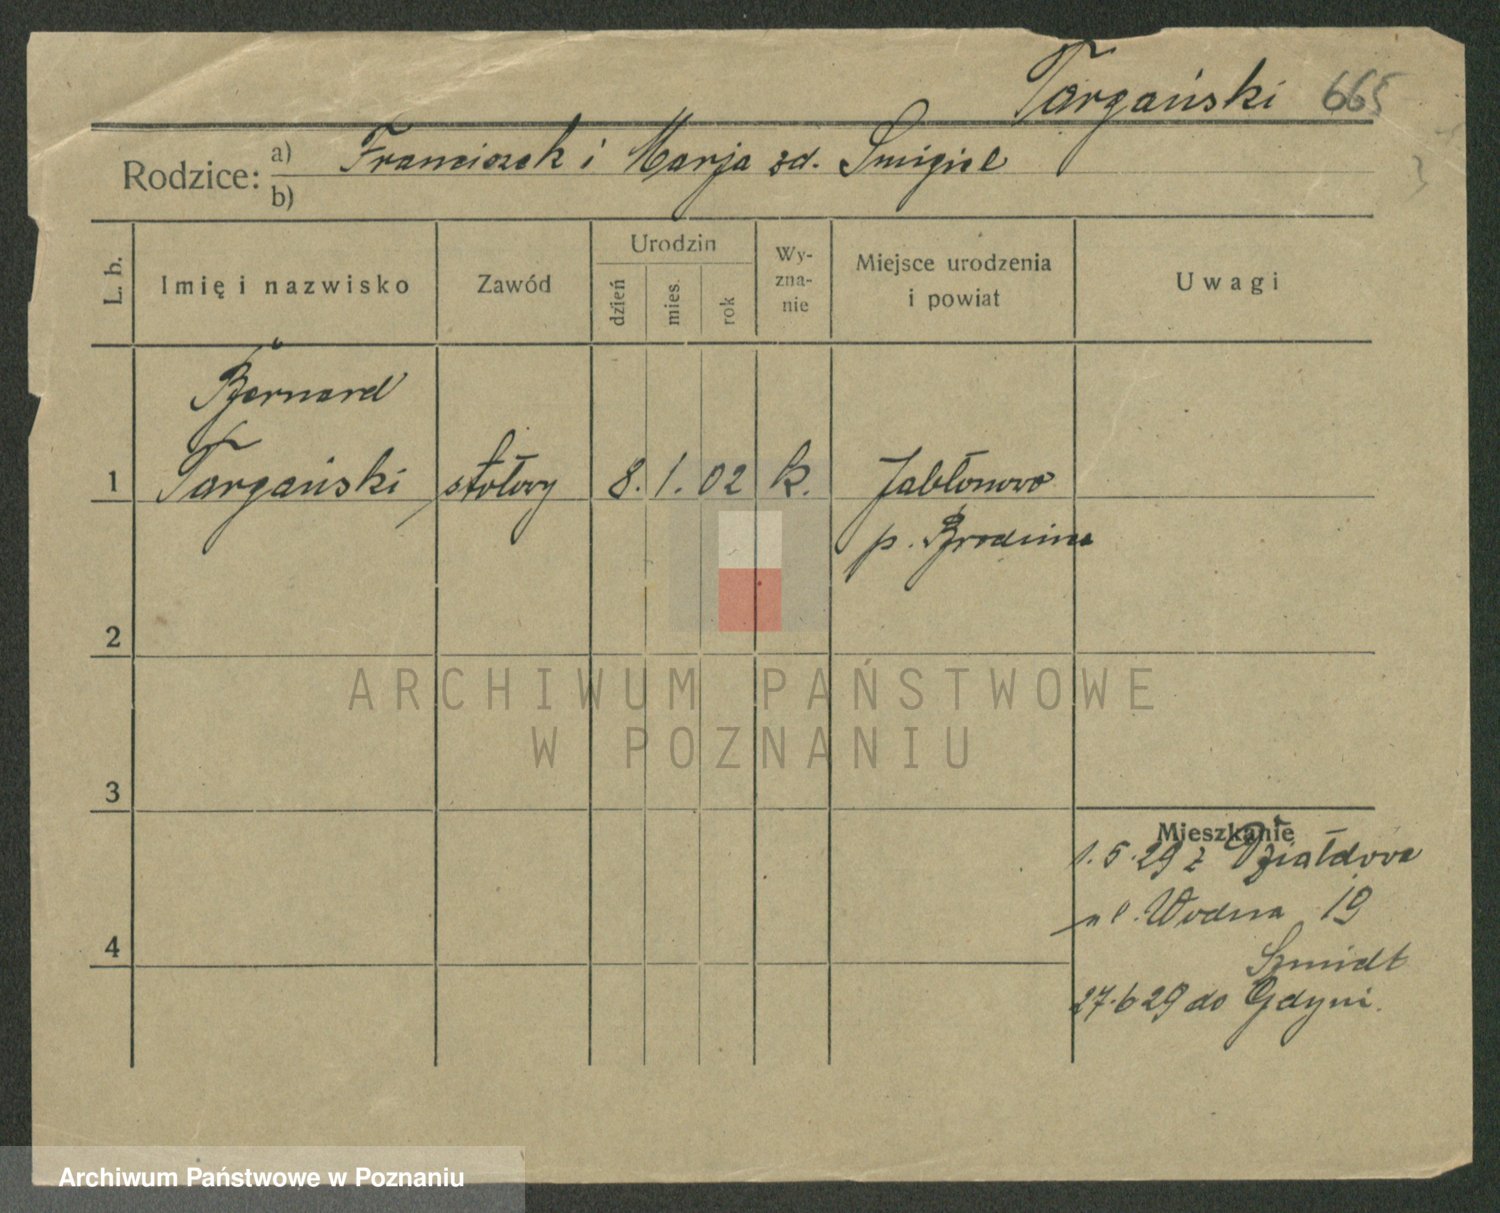 Targański 665
Rodzice: a) Franciszek i Marja zd. Śmigiel
b)
L. b.
Imię i nazwisko
Zawód
Urodzin
dzień
mies.
rok
Wy-
zna-
nie
Miejsce urodzenia
i powiat
Uwagi
Bernard
1 Targański stołowy 8. 1. 02 k. Jabłonowo
p. Brodnica
2
ARCHIWUM PAŃSTWOWE
W POZNANIU
3
Mieszkanie
1.5.29 z Działdowa
ul. Wodna 19
4
Szmidt
27.6 29 do Gdyni.
Archiwum Państwowe w Poznaniu